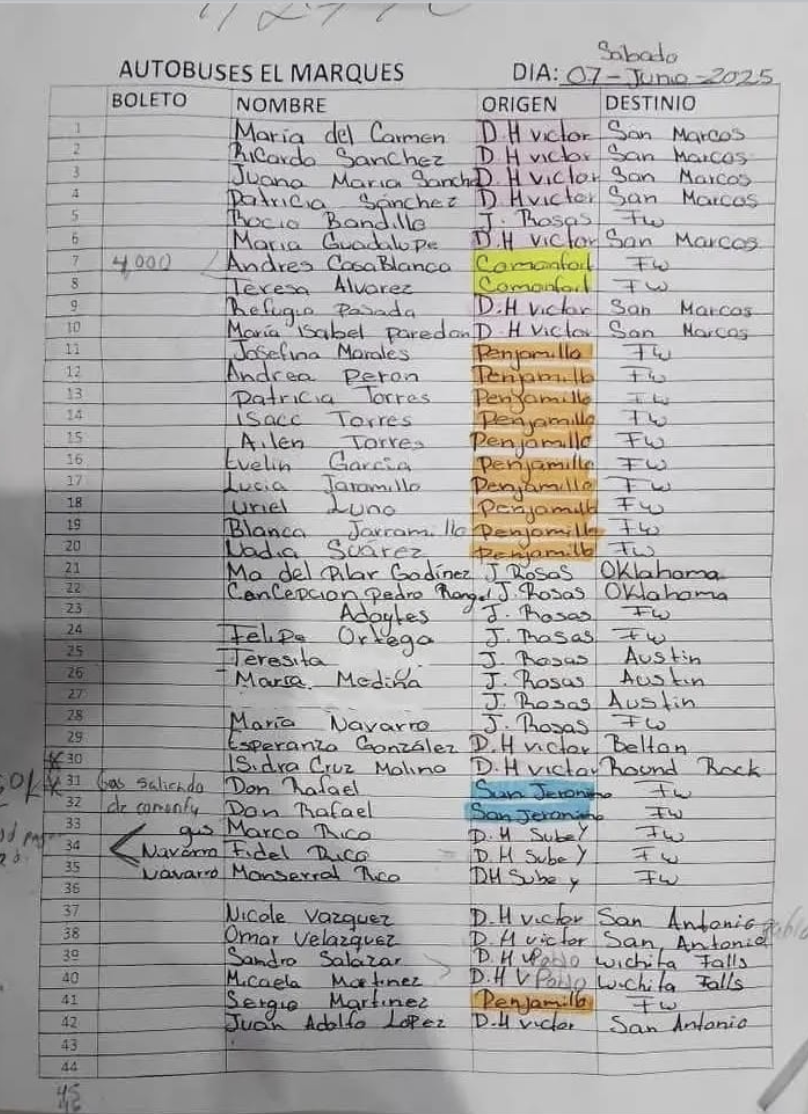 Sabado
AUTOBUSES EL MARQUES DIA: 07-Junio-2025
BOLETO NOMBRE ORIGEN DESTINIO
1 Maria del Carmen D H victor San Marcos
2 Ricardo Sanchez D H victor San Marcos
3 Juana Maria Sanche D. H victor San Marcos
4 Patricia Sánchez D H victor San Marcos
5 Rocio Bandillo J. Rosas Fw
6 Maria Guadalupe D.H victor San Marcos
7 4,000 Andres CasaBlanca Comonfort Fw
8 Teresa Alvarez Comonfort Fw
9 Refugio Posada D.H victor San Marcos
10 María Isabel paredon D H victor San Marcos
11 Josefina Morales Penjamillo Fw
12 Andrea peron Penjamillo Fw
13 Patricia Torres Penjamillo Fw
14 Isacc Torres Penjamillo Fw
15 Ailen Torres Penjamillo Fw
16 Evelin Garcia Penjamillo Fw
17 Lucia Jaramillo Penjamillo Fw
18 Uriel Luna Penjamillo Fw
19 Blanca Jarramillo Penjamillo Fw
20 Nadia Suárez Penjamillo Fw
21 Ma del Pilar Godínez J. Rosas Oklahoma
22 Concepcion pedro Rangel J. Rosas Oklahoma
23 J. Rosas Fw
24 Felipe Ortega J. Rosas Fw
25 Teresita J. Rosas Austin
26 Maria Medina J. Rosas Austin
27 J. Rosas Austin
28 María Navarro J. Rosas Fw
29 Esperanza González D.H victor Belton
30 Isidra Cruz Molina D.H victor Round Rock
31 Gas saliendo Don Rafael San Jeronimo Fw
32 de comonfy Don Rafael San Jeronimo Fw
33 gus Marco Rico D.H Sube Y Fw
34 Navarro Fidel Rico D.H Sube Y Fw
35 Navarro Monserrat Rico DH Sube y Fw
36
37 Nicole Vazquez D.H victor San Antonio
38 Omar Velazquez D.H victor San Antonio
39 Sandra Salazar D.H V Pablo wichita Falls
40 Micaela Martinez D.H V Pablo wichita Falls
41 Sergio Martinez Penjamillo Fw
42 Juan Adolfo Lopez D.H victor San Antonio
43
44
45
46